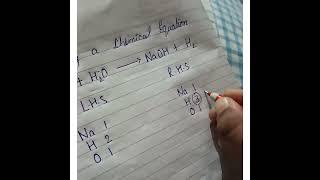 a Chemical Equation
+ H₂O ⟶ NaOH + H₂
L.H.S R.H.S
Na 1 Na 1
H 2 H
O 1 O 1